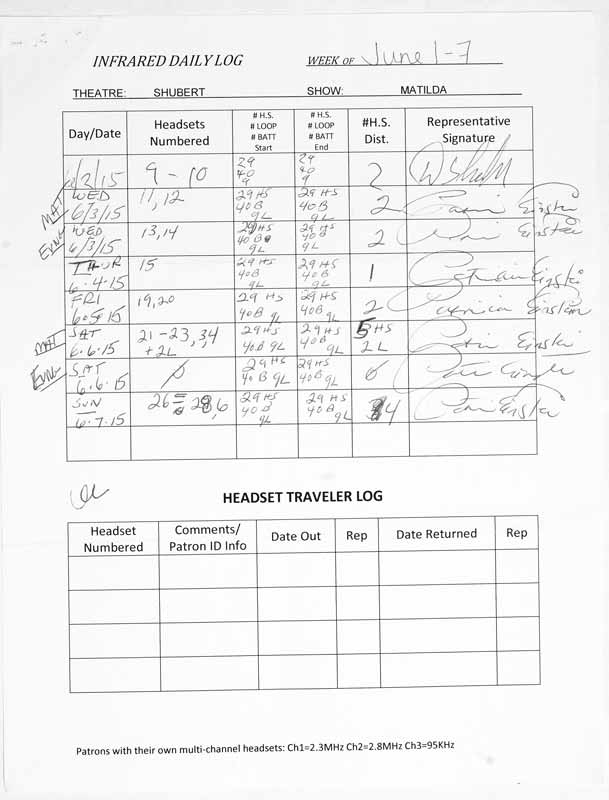 INFRARED DAILY LOG WEEK OF June 1-7
THEATRE: SHUBERT SHOW: MATILDA
Day/Date Headsets Numbered # H.S. # LOOP # BATT Start # H.S. # LOOP # BATT End #H.S. Dist. Representative Signature
6/2/15 9 - 10 29 40 9 29 40 9 2
MAT WED 6/3/15 11, 12 29 HS 40B 9L 29 HS 40B 9L 2
EVNG WED 6/3/15 13, 14 29 HS 40B 9L 29 HS 40B 9L 2
THUR 6.4.15 15 29 HS 40B 9L 29 HS 40B 9L 1
FRI 6.5.15 19, 20 29 HS 40B 9L 29 HS 40B 9L 2 Patricia Einstein
MAT SAT 6.6.15 21-23, 3,4 + 2L 29HS 40B 9L 29HS 40B 9L 5 HS 2L
EVNG SAT 6.6.15 29 HS 40B 9L 29HS 40B 9L
SUN 6.7.15 26 29 HS 40 B 9L 29 HS 40B 9L 4
HEADSET TRAVELER LOG
Headset Numbered Comments/ Patron ID Info Date Out Rep Date Returned Rep
Patrons with their own multi-channel headsets: Ch1=2.3MHz Ch2=2.8MHz Ch3=95KHz